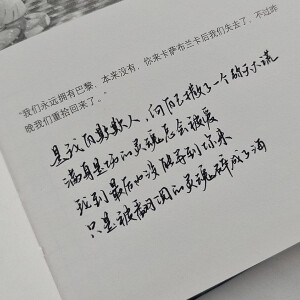 “我们永远拥有巴黎，本来没有，你来卡萨布兰卡后我们失去了，不过昨
晚我们重拾回来了。”
是我自欺欺人，向自己撒了一个弥天大谎
满身是伤的灵魂总会被爱
我到最后也没能等到你来
只是被翻涌的灵魂碎成了海